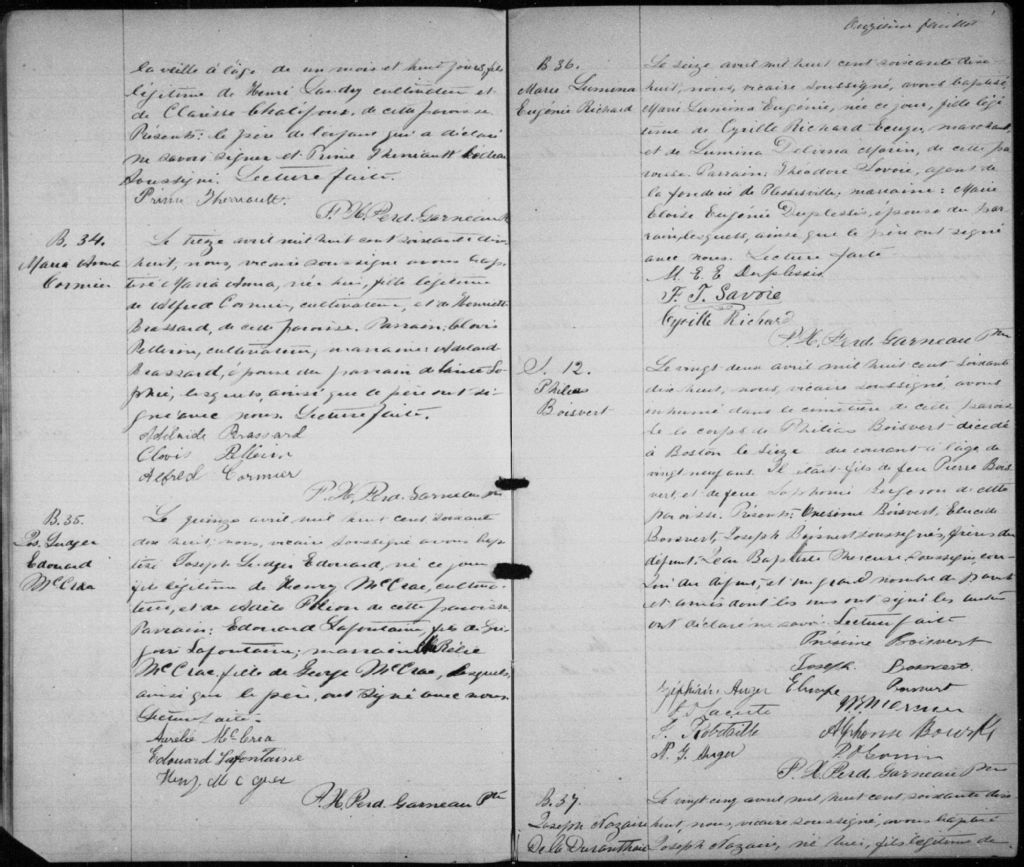 la veille à l'âge de un mois et huit jours, fils
légitime de Henri Landry cultivateur et
de Clarisse Chalifoux, de cette paroisse.
Présents: le père de l'enfant qui a déclaré
ne savoir signer et Prime Theriault
soussigné. Lecture faite.
Prime Therriault.
F. X. Ferd. Garneau
B. 34.
Maria Anna
Cormier
Le treize avril mil huit cent soixante dix
huit, nous, vicaire soussigné avons bap
tisé Maria Anna, née hier, fille légitime
de Alfred Cormier, cultivateur, et de Henriette
Brassard, de cette paroisse. Parrain: Clovis
Pellerin, cultivateur, marraine: Adelaïde
Brassard, épouse du parrain
lesquels, ainsi que le père ont si
gné avec nous. Lecture faite.
Adelaide Brassard
Clovis Pellerin
Alfred Cormier
F. X. Ferd. Garneau Ptre
B. 35.
Jos. Ludger
Edouard
McCrea
Le quinze avril mil huit cent soixante
dix huit, nous, vicaire soussigné avons bap
tisé Joseph Ludger Edouard, né ce jour
fils légitime de Henry McCrae, cultiva
teur, et de Adèle de cette paroisse.
Parrain: Edouard Lafontaine, fils de Gré
goire Lafontaine; marraine
McCrae, fille de George McCrae, lesquels,
ainsi que le père, ont signé avec nous.
Lecture faite.
Aurélie McCrea
Edouard Lafontaine
Henry McCrea
F. X. Ferd. Garneau Ptre
feuillet
B. 36.
Marie Lumina
Eugénie Richard
Le seize avril mil huit cent soixante dix
huit, nous, vicaire soussigné, avons baptisé
Marie Lumina Eugénie, née ce jour, fille légi
time de Cyrille Richard Ecuyer, marchand
et de Lumina Morin, de cette pa
roisse. Parrain: Théodore Savoie, agent de
la fonderie de Plessisville; marraine: Marie
Eloïse Eugénie Duplessis, épouse du par
rain, lesquels, ainsi que le père ont signé
avec nous. Lecture faite
M. E. E. Duplessis
F. T. Savoie
Cyrille Richard
F. X. Ferd. Garneau Ptre
S. 12.
Philias
Boisvert
Le vingt deux avril mil huit cent soixante
dix huit, nous, vicaire soussigné avons
inhumé dans le cimetière de cette parois
se le corps de Philias Boisvert décédé
à Boston le seize du courant à l'âge de
vingt neuf ans. Il était fils de feu Pierre Bois
vert, et de feue Sophonie Bergeron de cette
paroisse. Présents: Onésime Boisvert,
Boisvert, Joseph Boisvert soussignés, frères du
défunt. Jean Baptiste Mercure soussigné, cou
sin du défunt, et un grand nombre de parents
et amis dont les uns ont signé les autres
ont déclaré ne savoir. Lecture faite
Onésime Boisvert
Joseph Boisvert
Zéphirin Auger
Boisvert
J. Robitaille
Alphonse
N. G. Auger
F. X. Ferd. Garneau Ptre
B. 37
Joseph Nazaire
De la Durantaie
Le vingt cinq avril mil huit cent soixante dix
huit, nous, vicaire soussigné, avons baptisé
Joseph Nazaire, né hier, fils légitime de